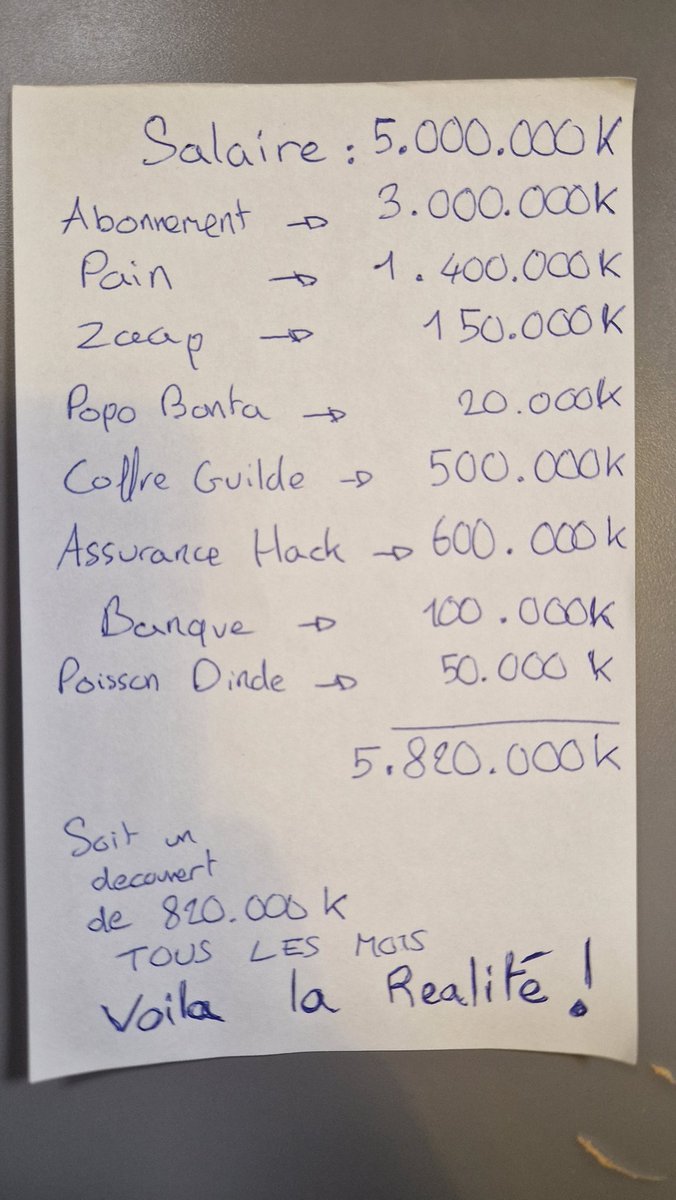 Salaire : 5.000.000K
Abonnement → 3.000.000K
Pain → 1.400.000K
Zaap → 150.000K
Popo Bonta → 20.000K
Coffre Guilde → 500.000K
Assurance Hack → 600.000K
Banque → 100.000K
Poisson Dinde → 50.000 K
5.820.000K
Soit un
decouvert
de 820.000 K
TOUS LES MOIS
Voila la Realité !